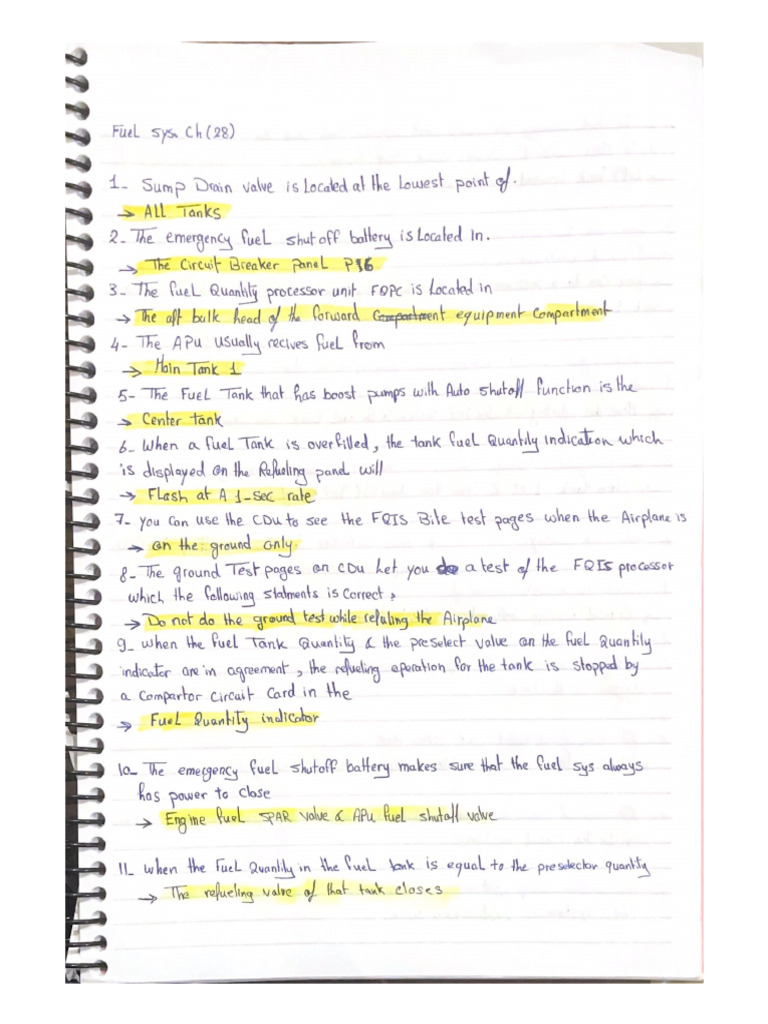 Fuel sys. Ch (28)
1- Sump Drain valve is Located at the Lowest point of.
→ All Tanks
2- The emergency fuel shut off battery is Located In.
→ The Circuit Breaker panel P56
3- The fuel Quantity processor unit FQPC is Located in
→ The aft bulk head of the forward Compartment equipment compartment
4- The APU usually recives fuel from
→ Main Tank 1
5- The Fuel Tank that has boost pumps with Auto shutoff function is the
→ Center tank
6- when a fuel Tank is overfilled, the tank fuel Quantity indication which
is displayed on the Refueling panel will
→ Flash at A 1-sec rate
7- you can use the CDU to see the FQIS Bite test pages when the Airplane is
→ on the ground only.
8- The ground Test pages on CDU Let you do a test of the FQIS processor
which the following statments is correct?
→ Do not do the ground test while refuling the Airplane
9- when the fuel Tank Quantity & the preselect value on the fuel Quantity
indicator are in agreement, the refueling operation for the tank is stopped by
a compartor circuit card in the
→ Fuel Quantity indicator
10- The emergency fuel shutoff battery makes sure that the fuel sys always
has power to close
→ Engine fuel SPAR valve & APU fuel shutoff valve
11- when the Fuel Quantity in the fuel tank is equal to the preselector quantity
→ The refueling valve of that tank closes